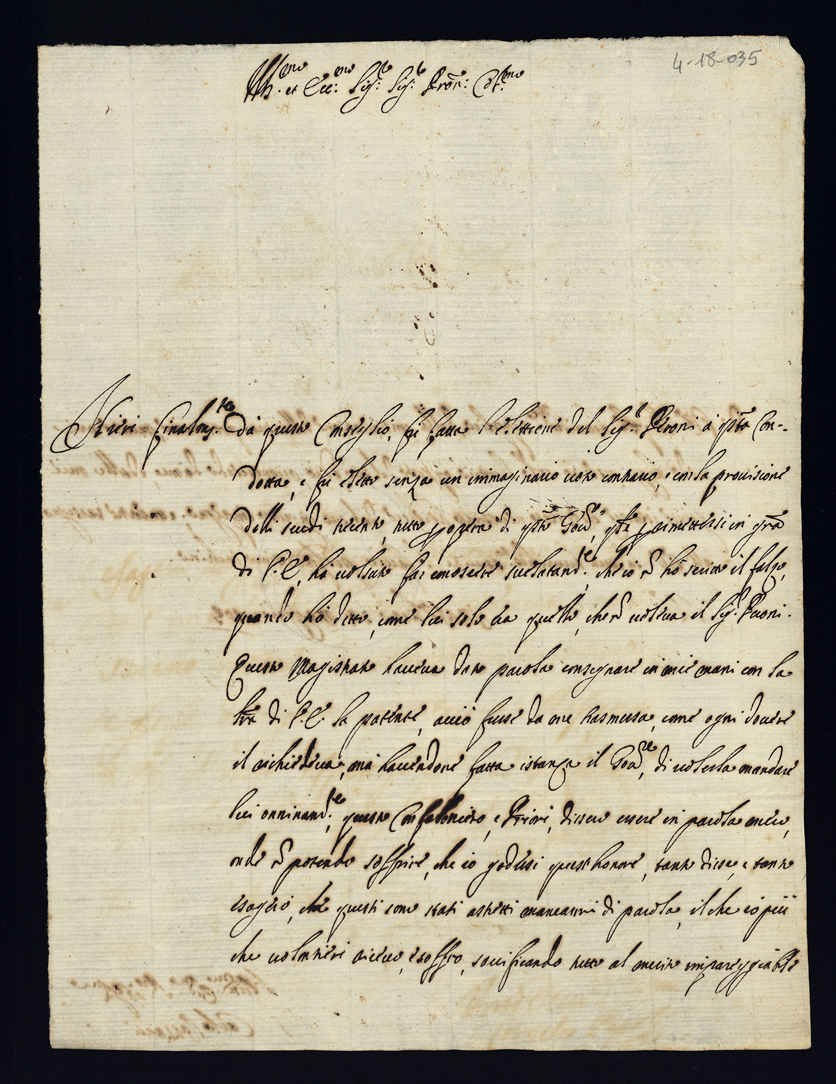 4-18-035
Ill.mo et Ecc.mo Sig.r Sig.r Pron: Col.mo
Hieri finalm.te da questo Conseglio, fu fatta l'elettione del Sig.r Peroni à q.sta Con-
dotta, e fu eletto senza un immaginario voto contrario, e con la provisione
delli scudi trecento, tutto opera di q.sto Gov.re, q.le p
di V.E., hà voluto far conoscere che io ñ hò scritto il falzo,
quando hò detto, come lui solo era quello, che ñ voleva il Sig.r Peroni.
Questo Magistrato haveva dato parola consegnare in mie mani con la
l̃ra di V.E. la patente, acciò fusse da me trasmessa, come ogni dovere
il richiedeva, mà havendone fatta istanza il Gov.re, di volerla mandare
lui onninam.te, questo Confaloniero, e Priori, dissero essere in parola meco,
onde ñ potendo soffrire, che io godessi quest'honore, tanto disse, e tanto
esagerò, che questi sono stati astretti mancarmi di parola, il che io più
che volontieri ricevo, e soffro, sacrificando tutto al merito impareggiabile